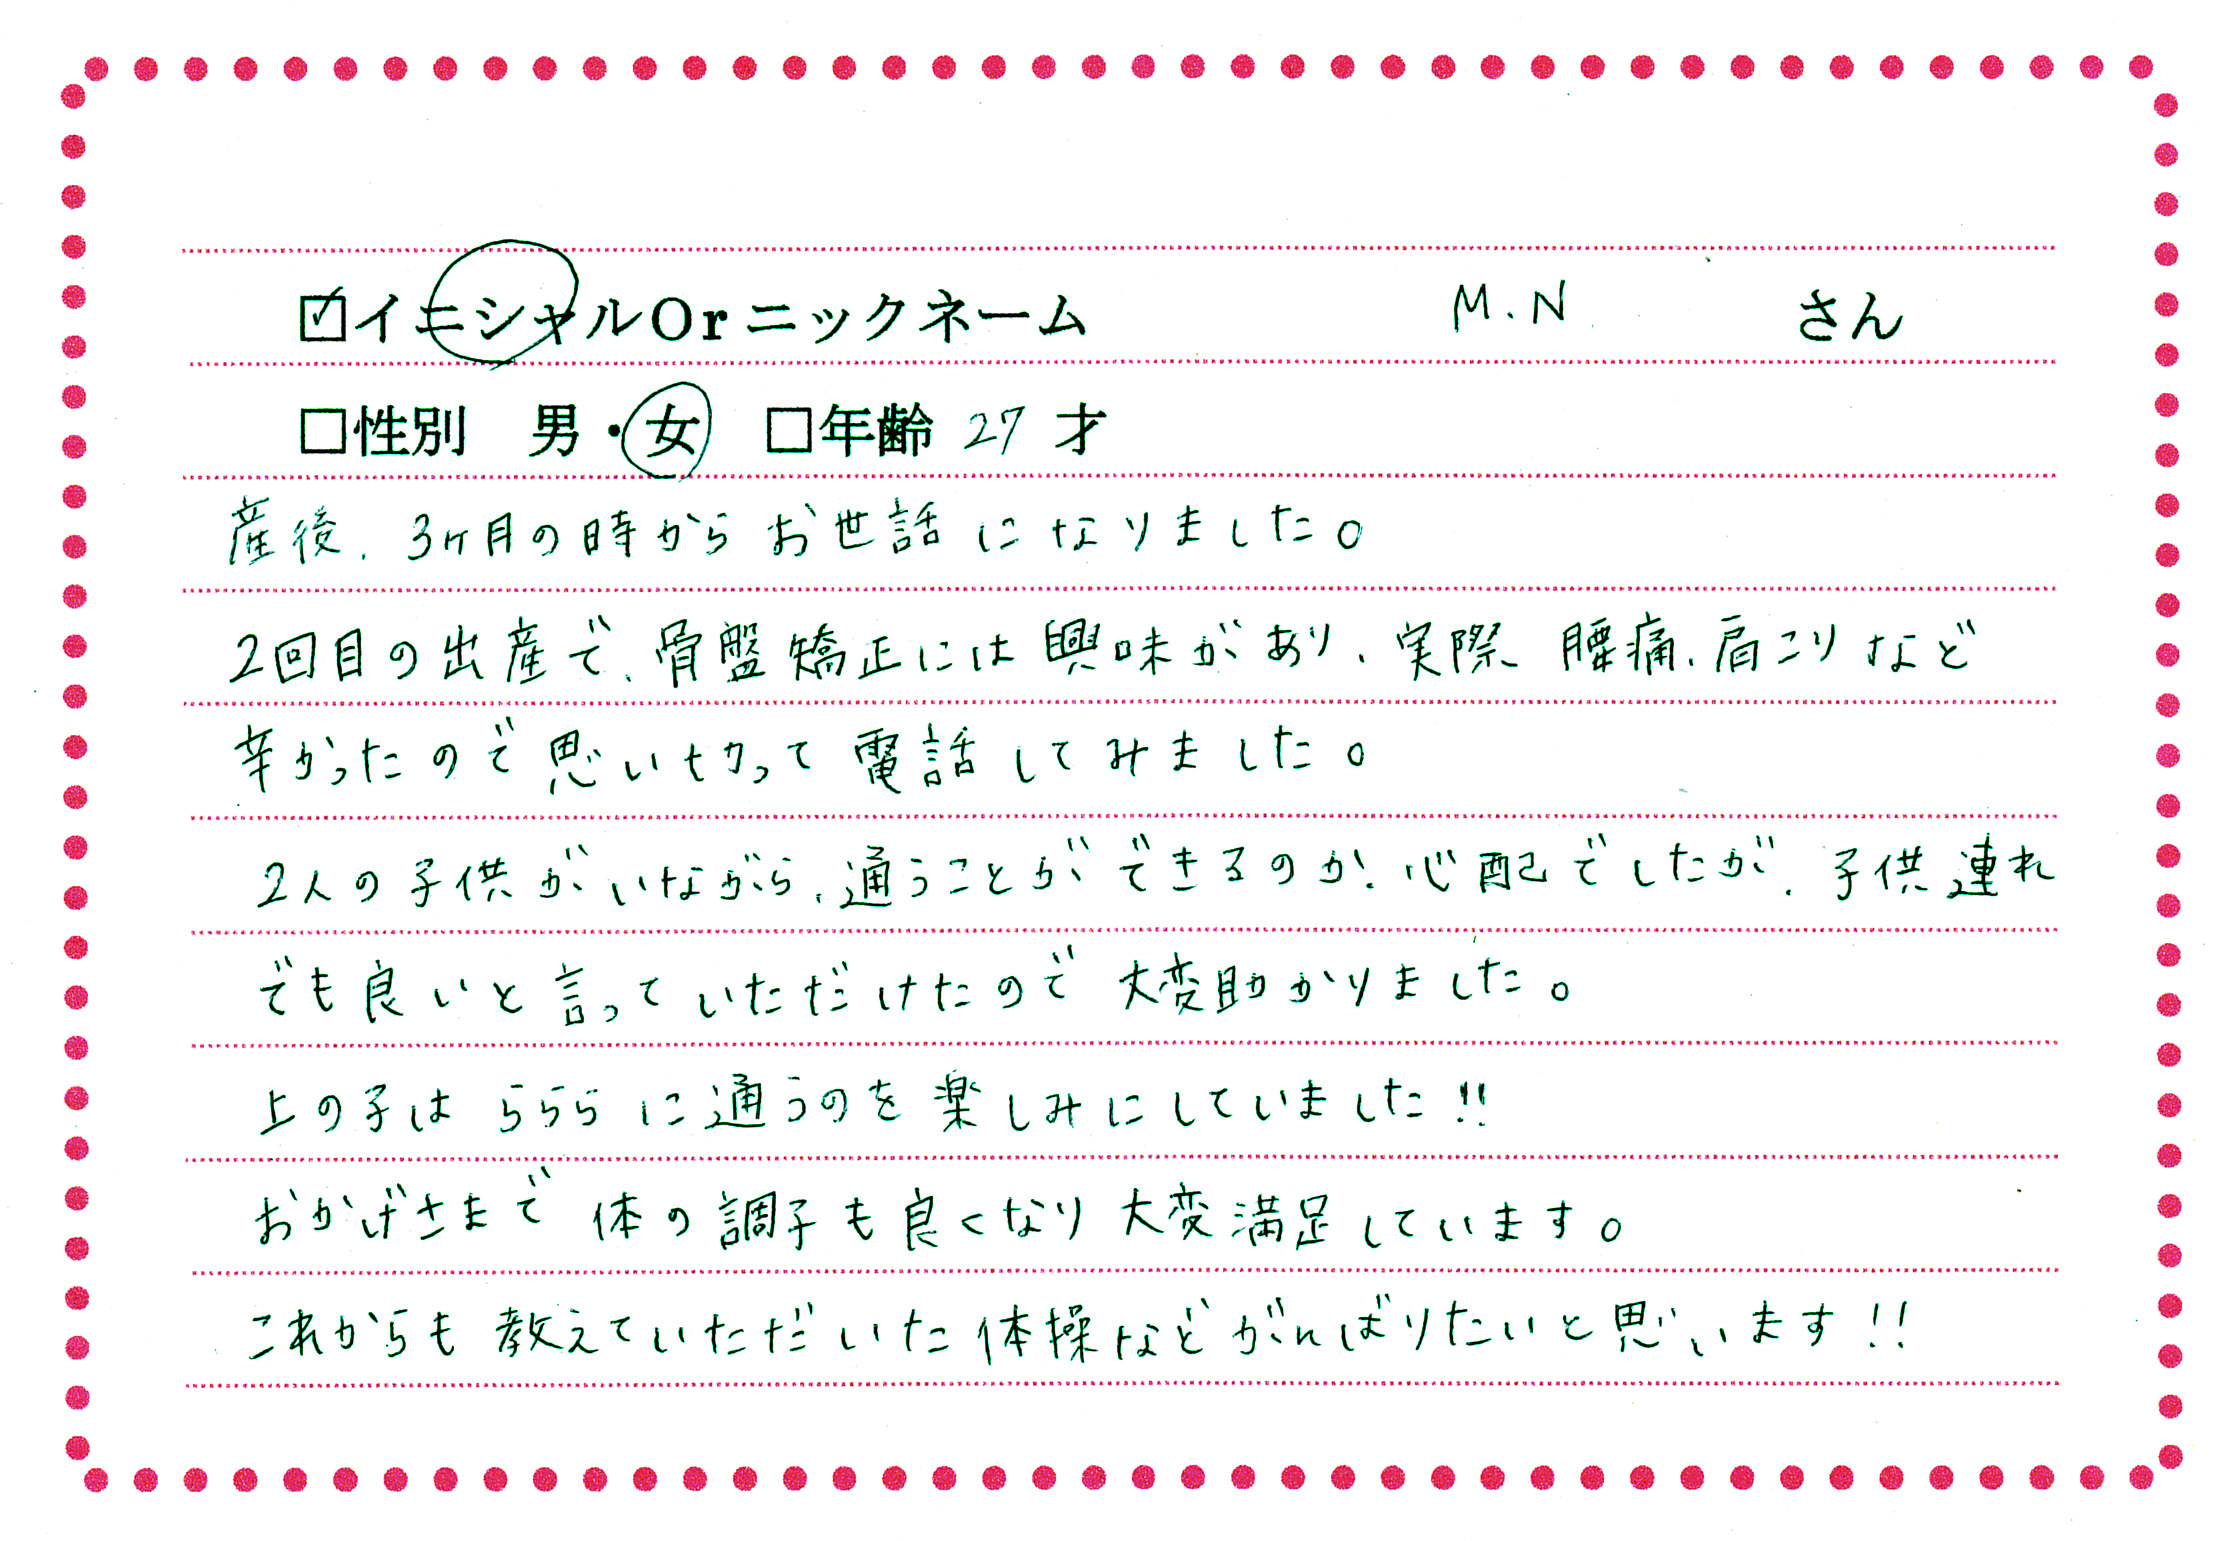 ☑イニシャルOrニックネーム M.N さん
□性別 男・女 □年齢 27 才
産後、3ヶ月の時からお世話になりました。
2回目の出産で、骨盤矯正には興味があり、実際、腰痛、肩こりなど
辛かったので思い切って電話してみました。
2人の子供がいながら、通うことができるのか、心配でしたが、子供連れ
でも良いと言っていただけたので大変助かりました。
上の子はらららに通うのを楽しみにしていました!!
おかげさまで体の調子も良くなり大変満足しています。
これからも教えていただいた体操などがんばりたいと思います!!